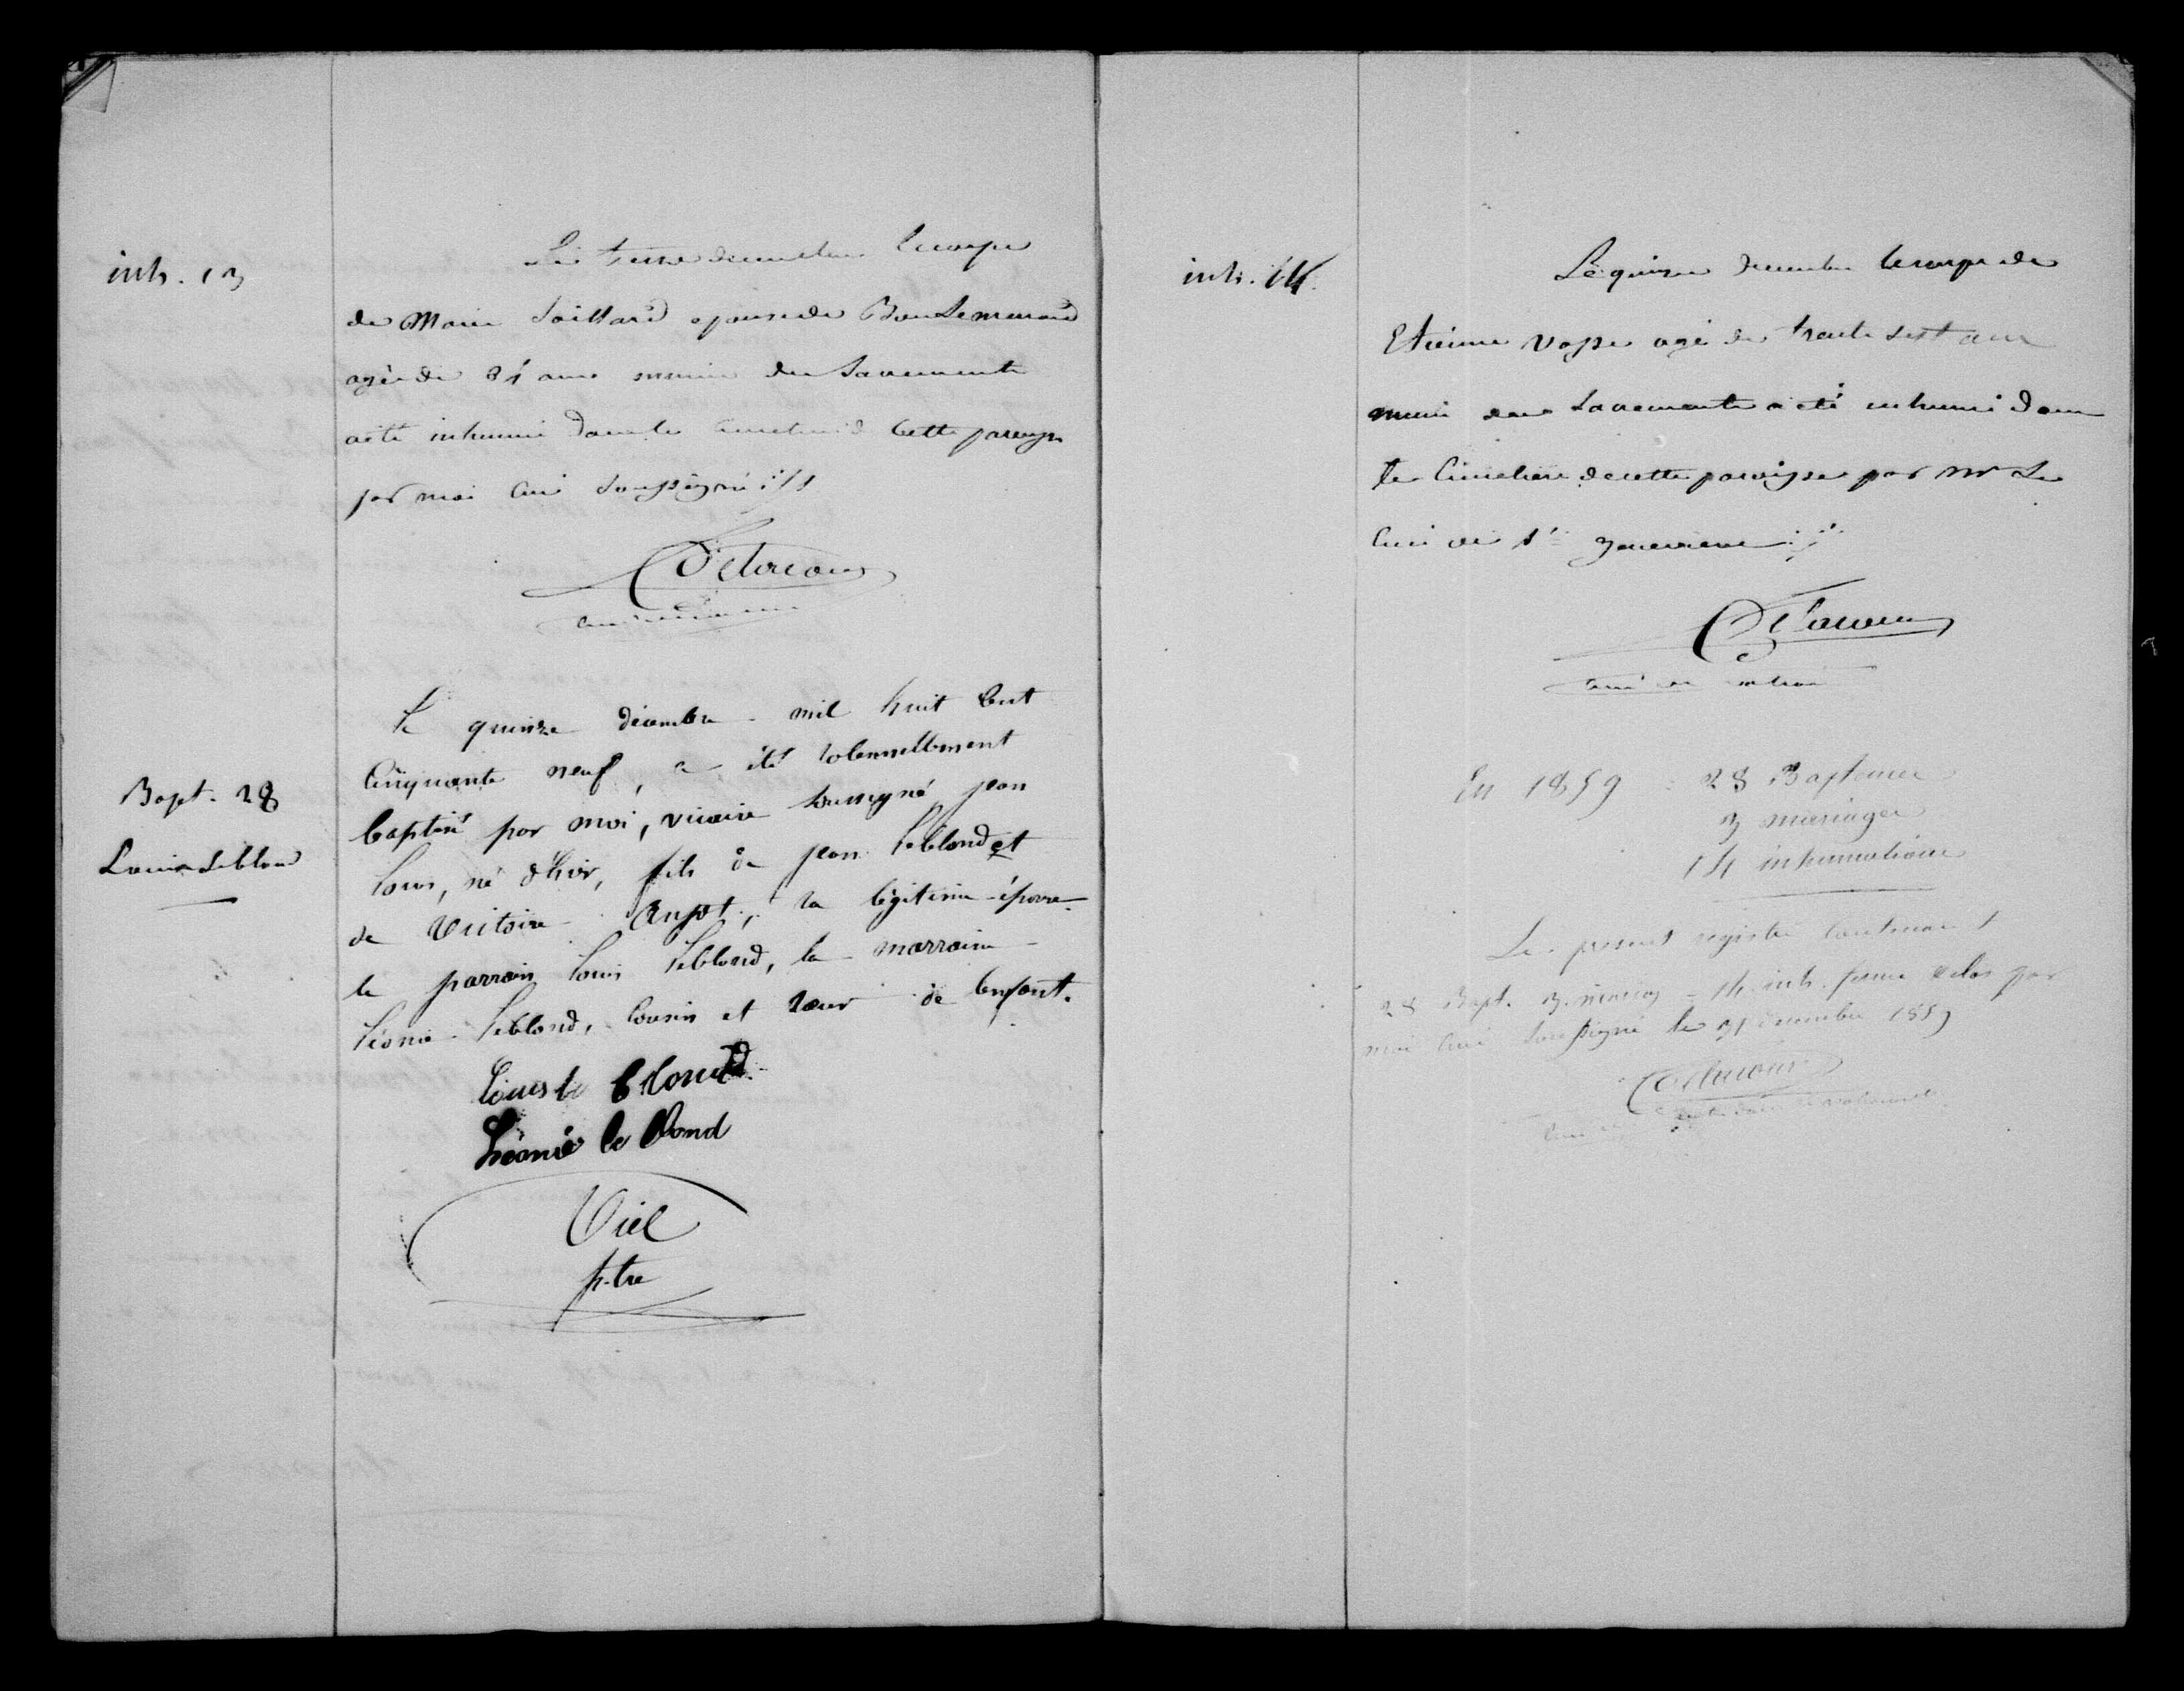 inh. 13
Le treize decembre le corps
de Marie Soillard epouse de Bon Lemarand
agée de 81 ans munie des Sacrements
a été inhumé dans le cimetiere de Cette paroisse
par moi curé soussigné
Bapt. 28
Louis Leblond
Le quinze décembre mil huit Cent
Cinquante neuf, a été solennellement
baptisé par moi, vicaire soussigné, jean
Louis, né d'hier, fils de jean Leblond et
de Victoire Anjot, sa légitime épouse
le parrain Louis Leblond, la marraine
Léonie Leblond, cousin et sœur de l'enfant.
Louis le blond
Léonie le blond
Viel
ptre
inh. 14.
Le quinze decembre le corps de
Etienne Vasse agé de trente sept ans
muni des Sacrements a été inhumé dans
le Cimetiere de cette paroisse par Mr Le
Curé de Ste genevieve
En 1859 28 Baptemes
3 mariages
14 inhumations
Le present registre contenant
28 Bapt. 3 mariag 14 inh. fermé et clos par
moi Curé Soussigné le 31 decembre 1859